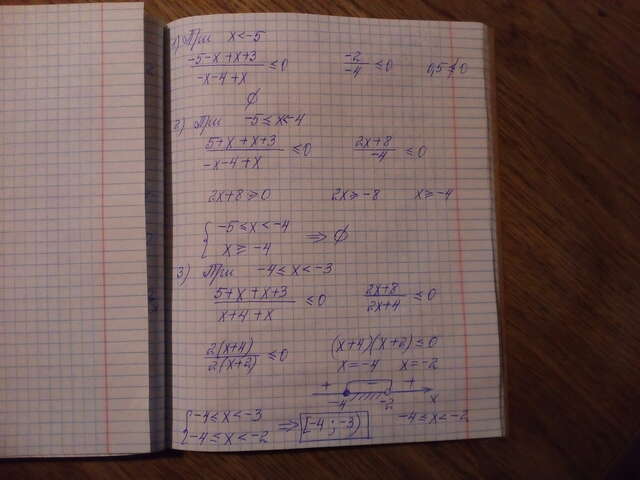 1) При x<-5
(-5-x+x+3)/(-x-4+x) ≤0   -2/-4 ≤0   0,5≰0
∅
2) При -5≤x<-4
(5+x+x+3)/(-x-4+x) ≤0   (2x+8)/-4 ≤0
2x+8≥0   2x≥-8   x≥-4
{ -5≤x<-4
x≥-4 ⇒ ∅
3) При -4≤x<-3
(5+x+x+3)/(x+4+x) ≤0   (2x+8)/(2x+4) ≤0
2(x+4)/2(x+2) ≤0   (x+4)(x+2)≤0
x=-4   x=-2
+ - +
-4 -2 x
{ -4≤x<-3
-4≤x<-2 ⇒ [-4;-3)   -4≤x<-2